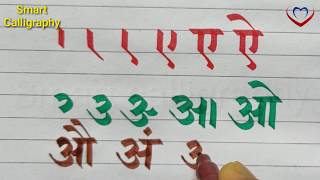 Smart
Calligraphy
ए ए ऐ
उ उ अ आ ओ
औ अं